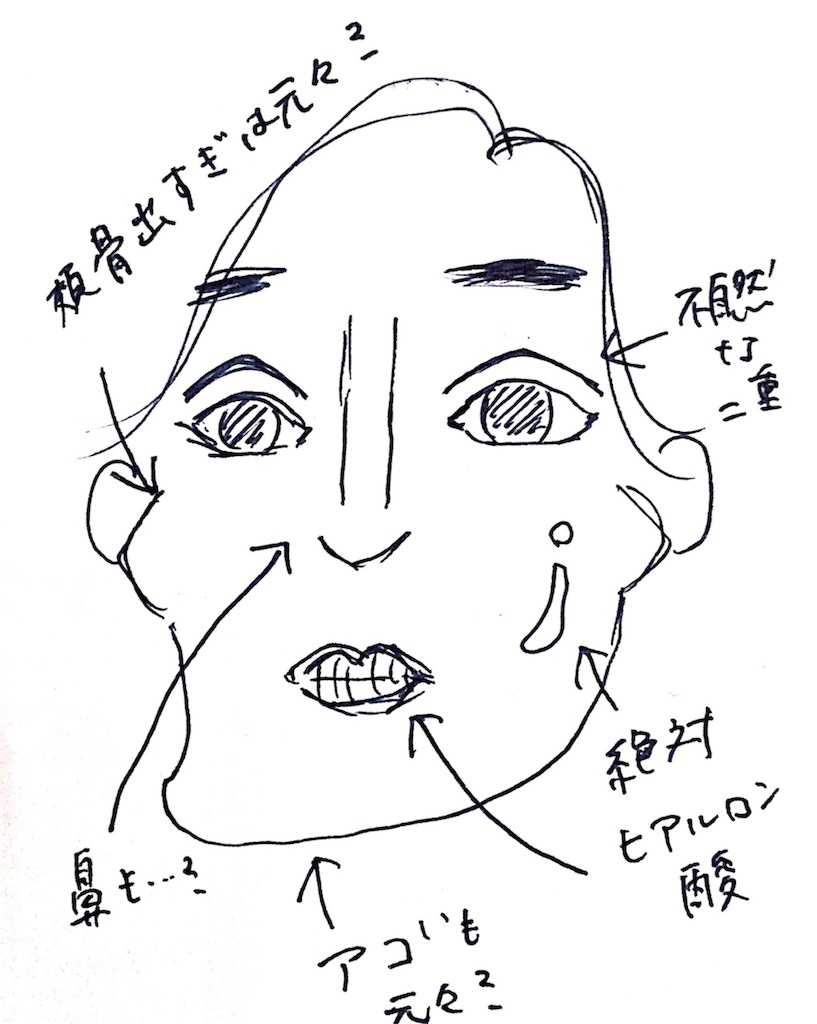 頬骨出すぎは元々?
不自然
な
二重
絶対
ヒアルロン
酸
鼻も…?
アゴも
元々?